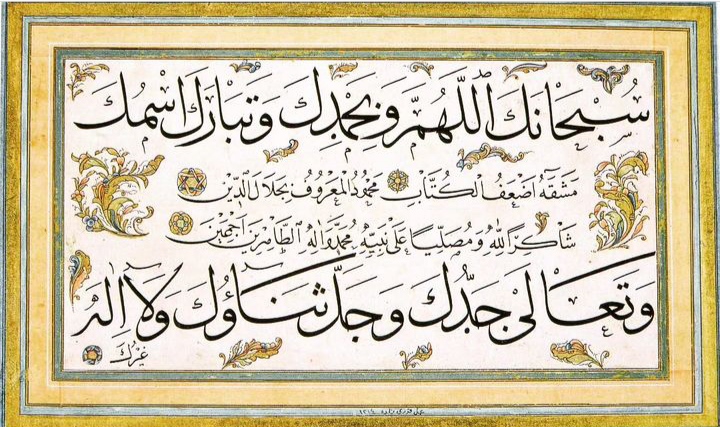 سُبْحَانَكَ اللّٰهُمَّ وَبِحَمْدِكَ وَتَبَارَكَ اسْمُكَ
مَشَقَهُ اَضْعَفُ الْكُتَّابِ مَحْمُودُ الْمَعْرُوفُ بِجَلَالِ الدِّينِ
شَاكِرًا لِلّٰهِ وَمُصَلِّيًا عَلَى نَبِيِّهِ مُحَمَّدٍ وَاٰلِهِ الطَّاهِرِينَ اَجْمَعِينَ
وَتَعَالٰى جَدُّكَ وَجَلَّ ثَنَاؤُكَ وَلَا اِلٰهَ
غَيْرُكَ